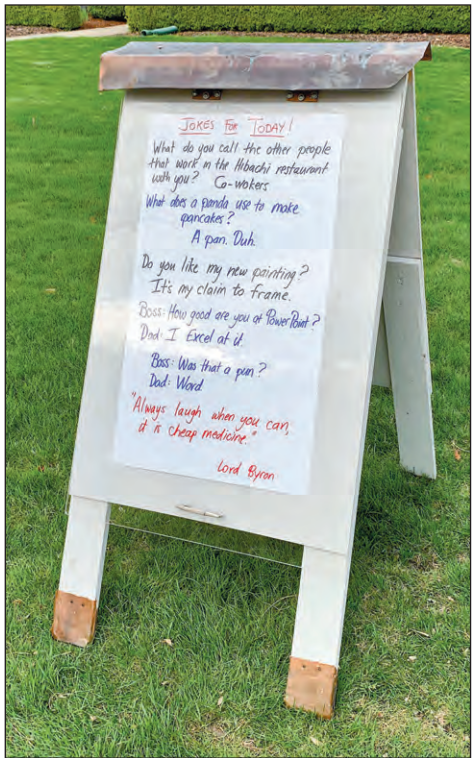 JOKES FOR TODAY!
What do you call the other people
that work in the Hibachi restaurant
with you? Co-wokers
What does a panda use to make
pancakes?
A pan. Duh.
Do you like my new painting?
It's my claim to frame.
Boss: How good are you at PowerPoint?
Dad: I Excel at it.
Boss: Was that a pun?
Dad: Word
"Always laugh when you can,
it is cheap medicine."
Lord Byron